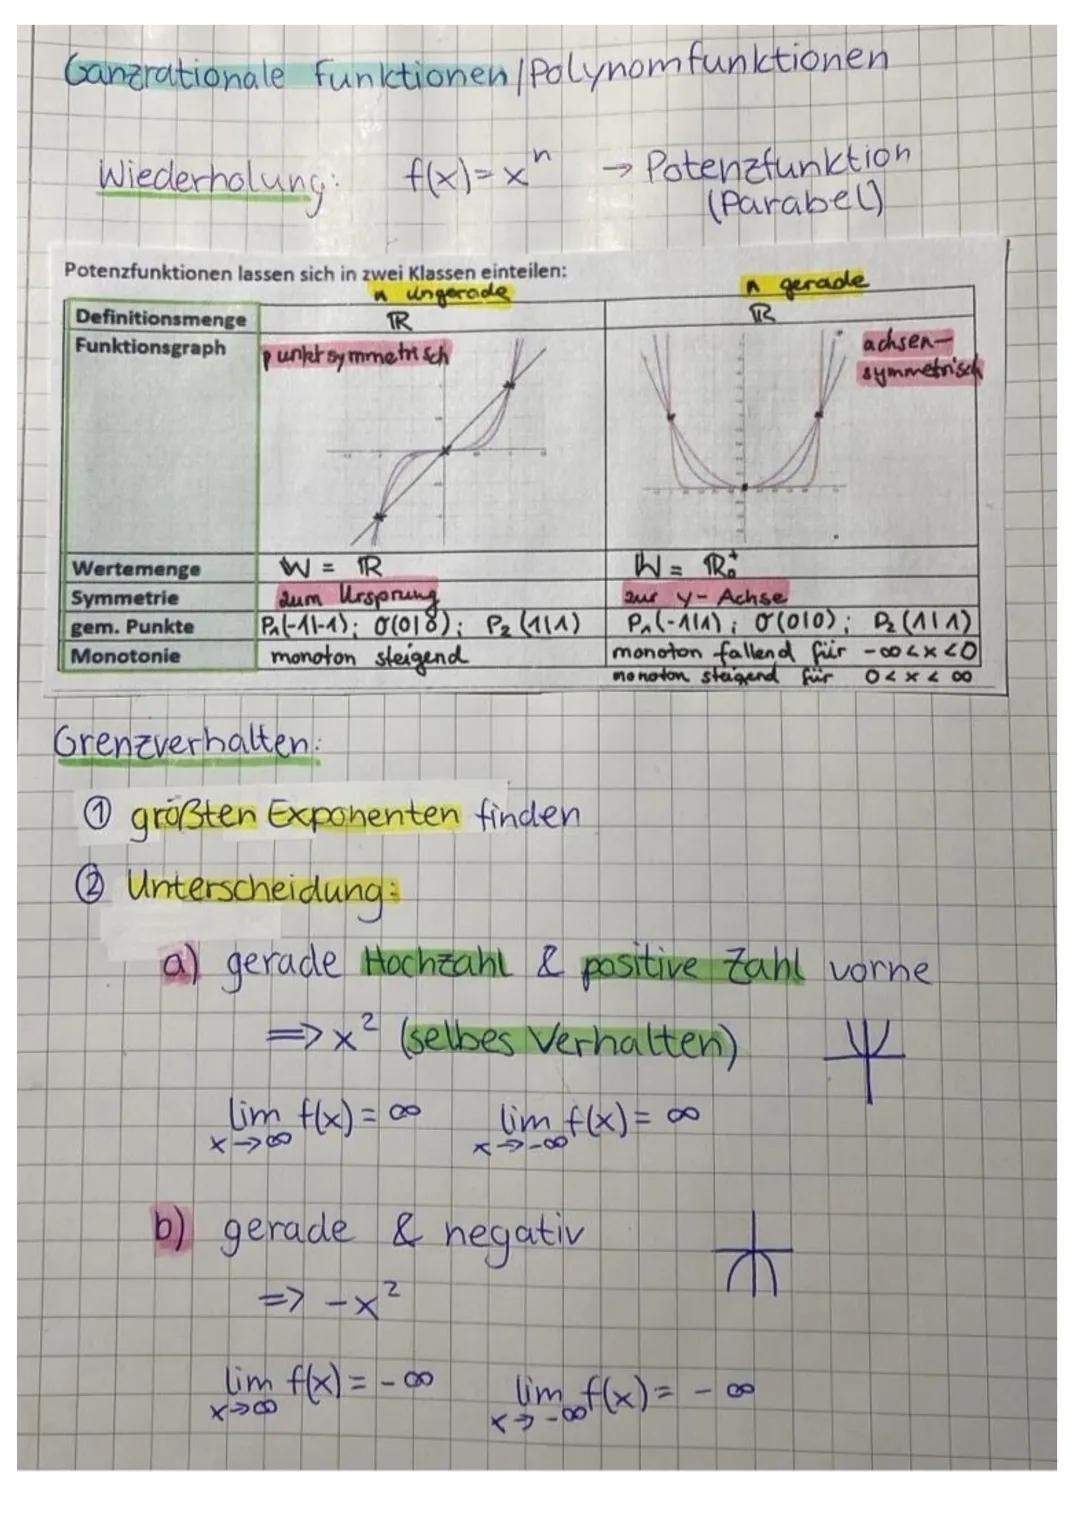 Ganzrationale Funktionen/Polynomfunktionen
Wiederholung: f(x)=xⁿ → Potenzfunktion
(Parabel)
Potenzfunktionen lassen sich in zwei Klassen einteilen:
n ungerade n gerade
Definitionsmenge ℝ ℝ
Funktionsgraph punktsymmetrisch achsen-
symmetrisch
Wertemenge W = ℝ W = ℝ₀⁺
Symmetrie zum Ursprung zur y-Achse
gem. Punkte P₁(-1|-1); O(0|0); P₂(1|1) P₁(-1|1); O(0|0); P₂(1|1)
Monotonie monoton steigend monoton fallend für -∞<x<0
monoton steigend für 0<x<∞
Grenzverhalten:
① größten Exponenten finden
② Unterscheidung:
a) gerade Hochzahl & positive Zahl vorne
=> x² (selbes Verhalten)
lim f(x) = ∞ lim f(x) = ∞
x→∞ x→-∞
b) gerade & negativ
=> -x²
lim f(x) = -∞ lim f(x) = -∞
x→∞ x→-∞